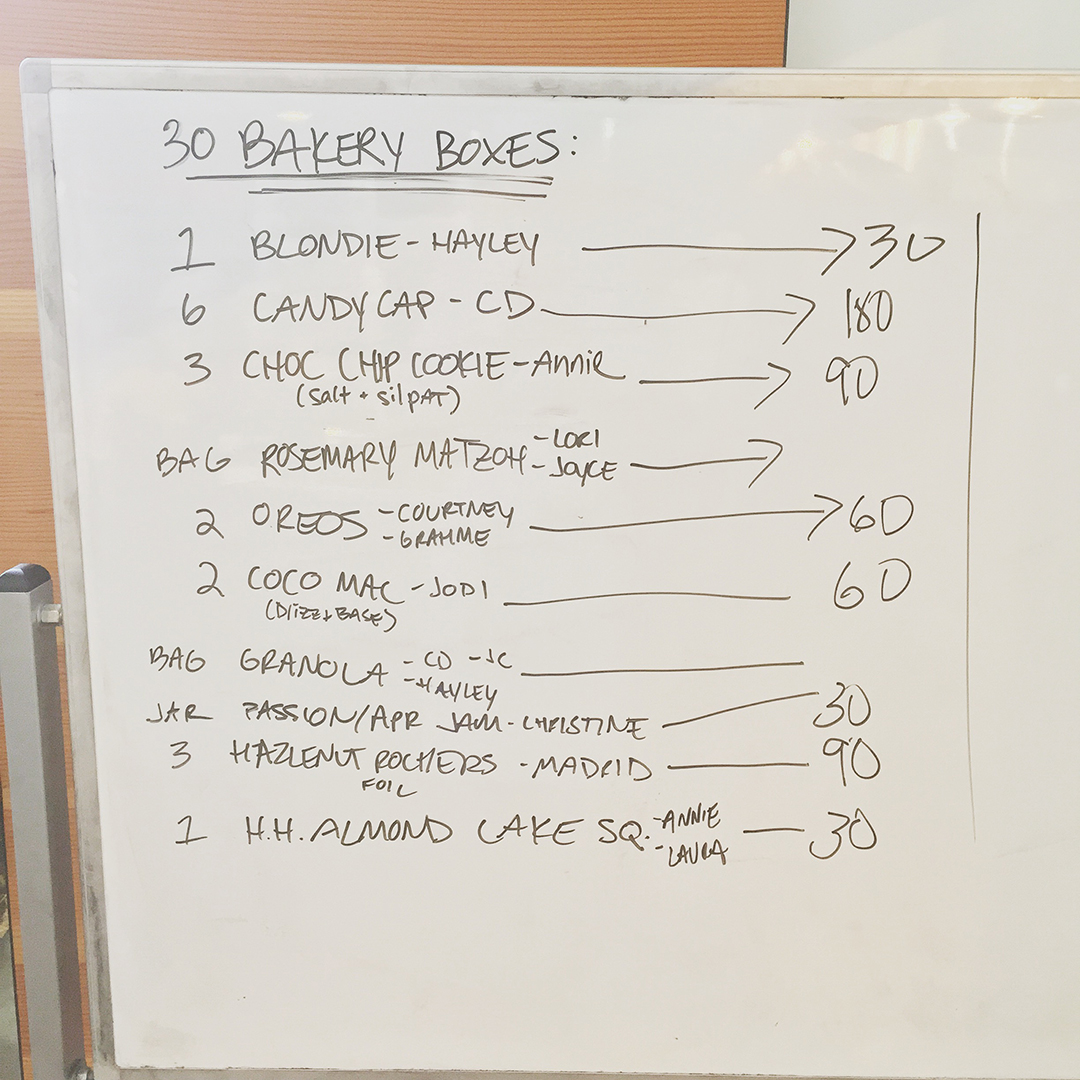 30 BAKERY BOXES:
1 BLONDIE - HAYLEY → 30
6 CANDY CAP - CD → 180
3 CHOC CHIP COOKIE - Annie → 90
(Salt + silPAT)
BAG ROSEMARY MATZOH - LORI →
- JOYCE
2 OREOS - COURTNEY → 60
- GRAHME
2 COCO MAC - JODI — 60
(Drizz + BASE)
BAG GRANOLA - CD - JC —
- HAYLEY
JAR PASSION/APR JAM - CHRISTINE — 30
3 HAZLENUT ROCHERS - MADRID — 90
FOIL
1 H.H. ALMOND CAKE SQ. - ANNIE — 30
- LAURA